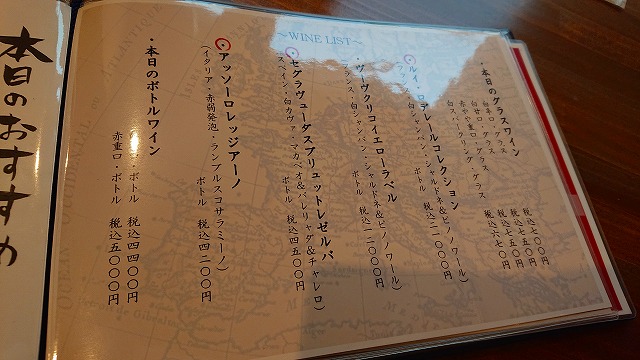 本日のおすすめ
〜WINE LIST〜
・本日のグラスワイン
白辛口・グラス 税込七〇〇円
白甘口・グラス 税込七五〇円
赤やや重口・グラス 税込七五〇円
白スパークリング・グラス 税込六七〇円
・ルイ・ロデレールコレクション
白シャンパン・シャルドネ&ピノノワール)
ボトル 税込
・ヴーヴクリコイエローラベル
白シャンパン・シャルドネ&ピノノワール)
ボトル 税込一二〇〇〇円
・セグラヴューダスブリュットレゼルバ
スペイン・白カヴァ・マカベオ&パレリャダ&チャレロ)
ボトル 税込四五〇〇円
・アッソーロレッジアーノ
(イタリア・赤弱発泡・ランブルスコサラミーノ)
ボトル 税込四二〇〇円
・本日のボトルワイン
・ボトル 税込四四〇〇円
赤重口・ボトル 税込五〇〇〇円